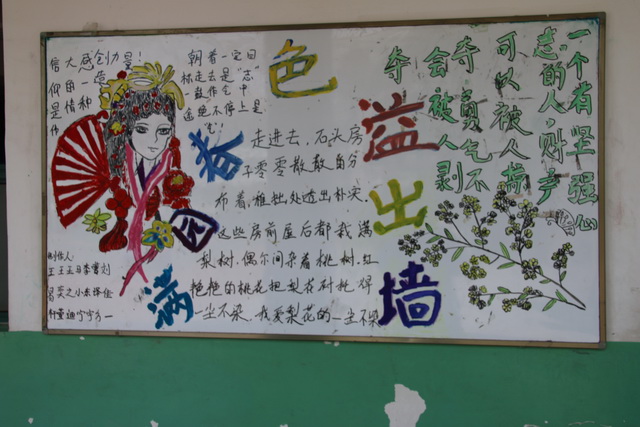 朝着一定目
标走去是“志”
一鼓作气中
途绝不停止是
“气”
春
满
园
色
溢
出
墙
走进去,石头房
子零零散散的分
布着,粗拙处透出朴实,
这些房前屋后都栽满
梨树,偶尔间杂着桃树,红
艳艳的桃花把梨花衬托得
一尘不染,我爱梨花的一尘不染
一个有坚强心
志的人,财产
可以被人掠
夺,勇气不
会被人剥
夺
制作人: